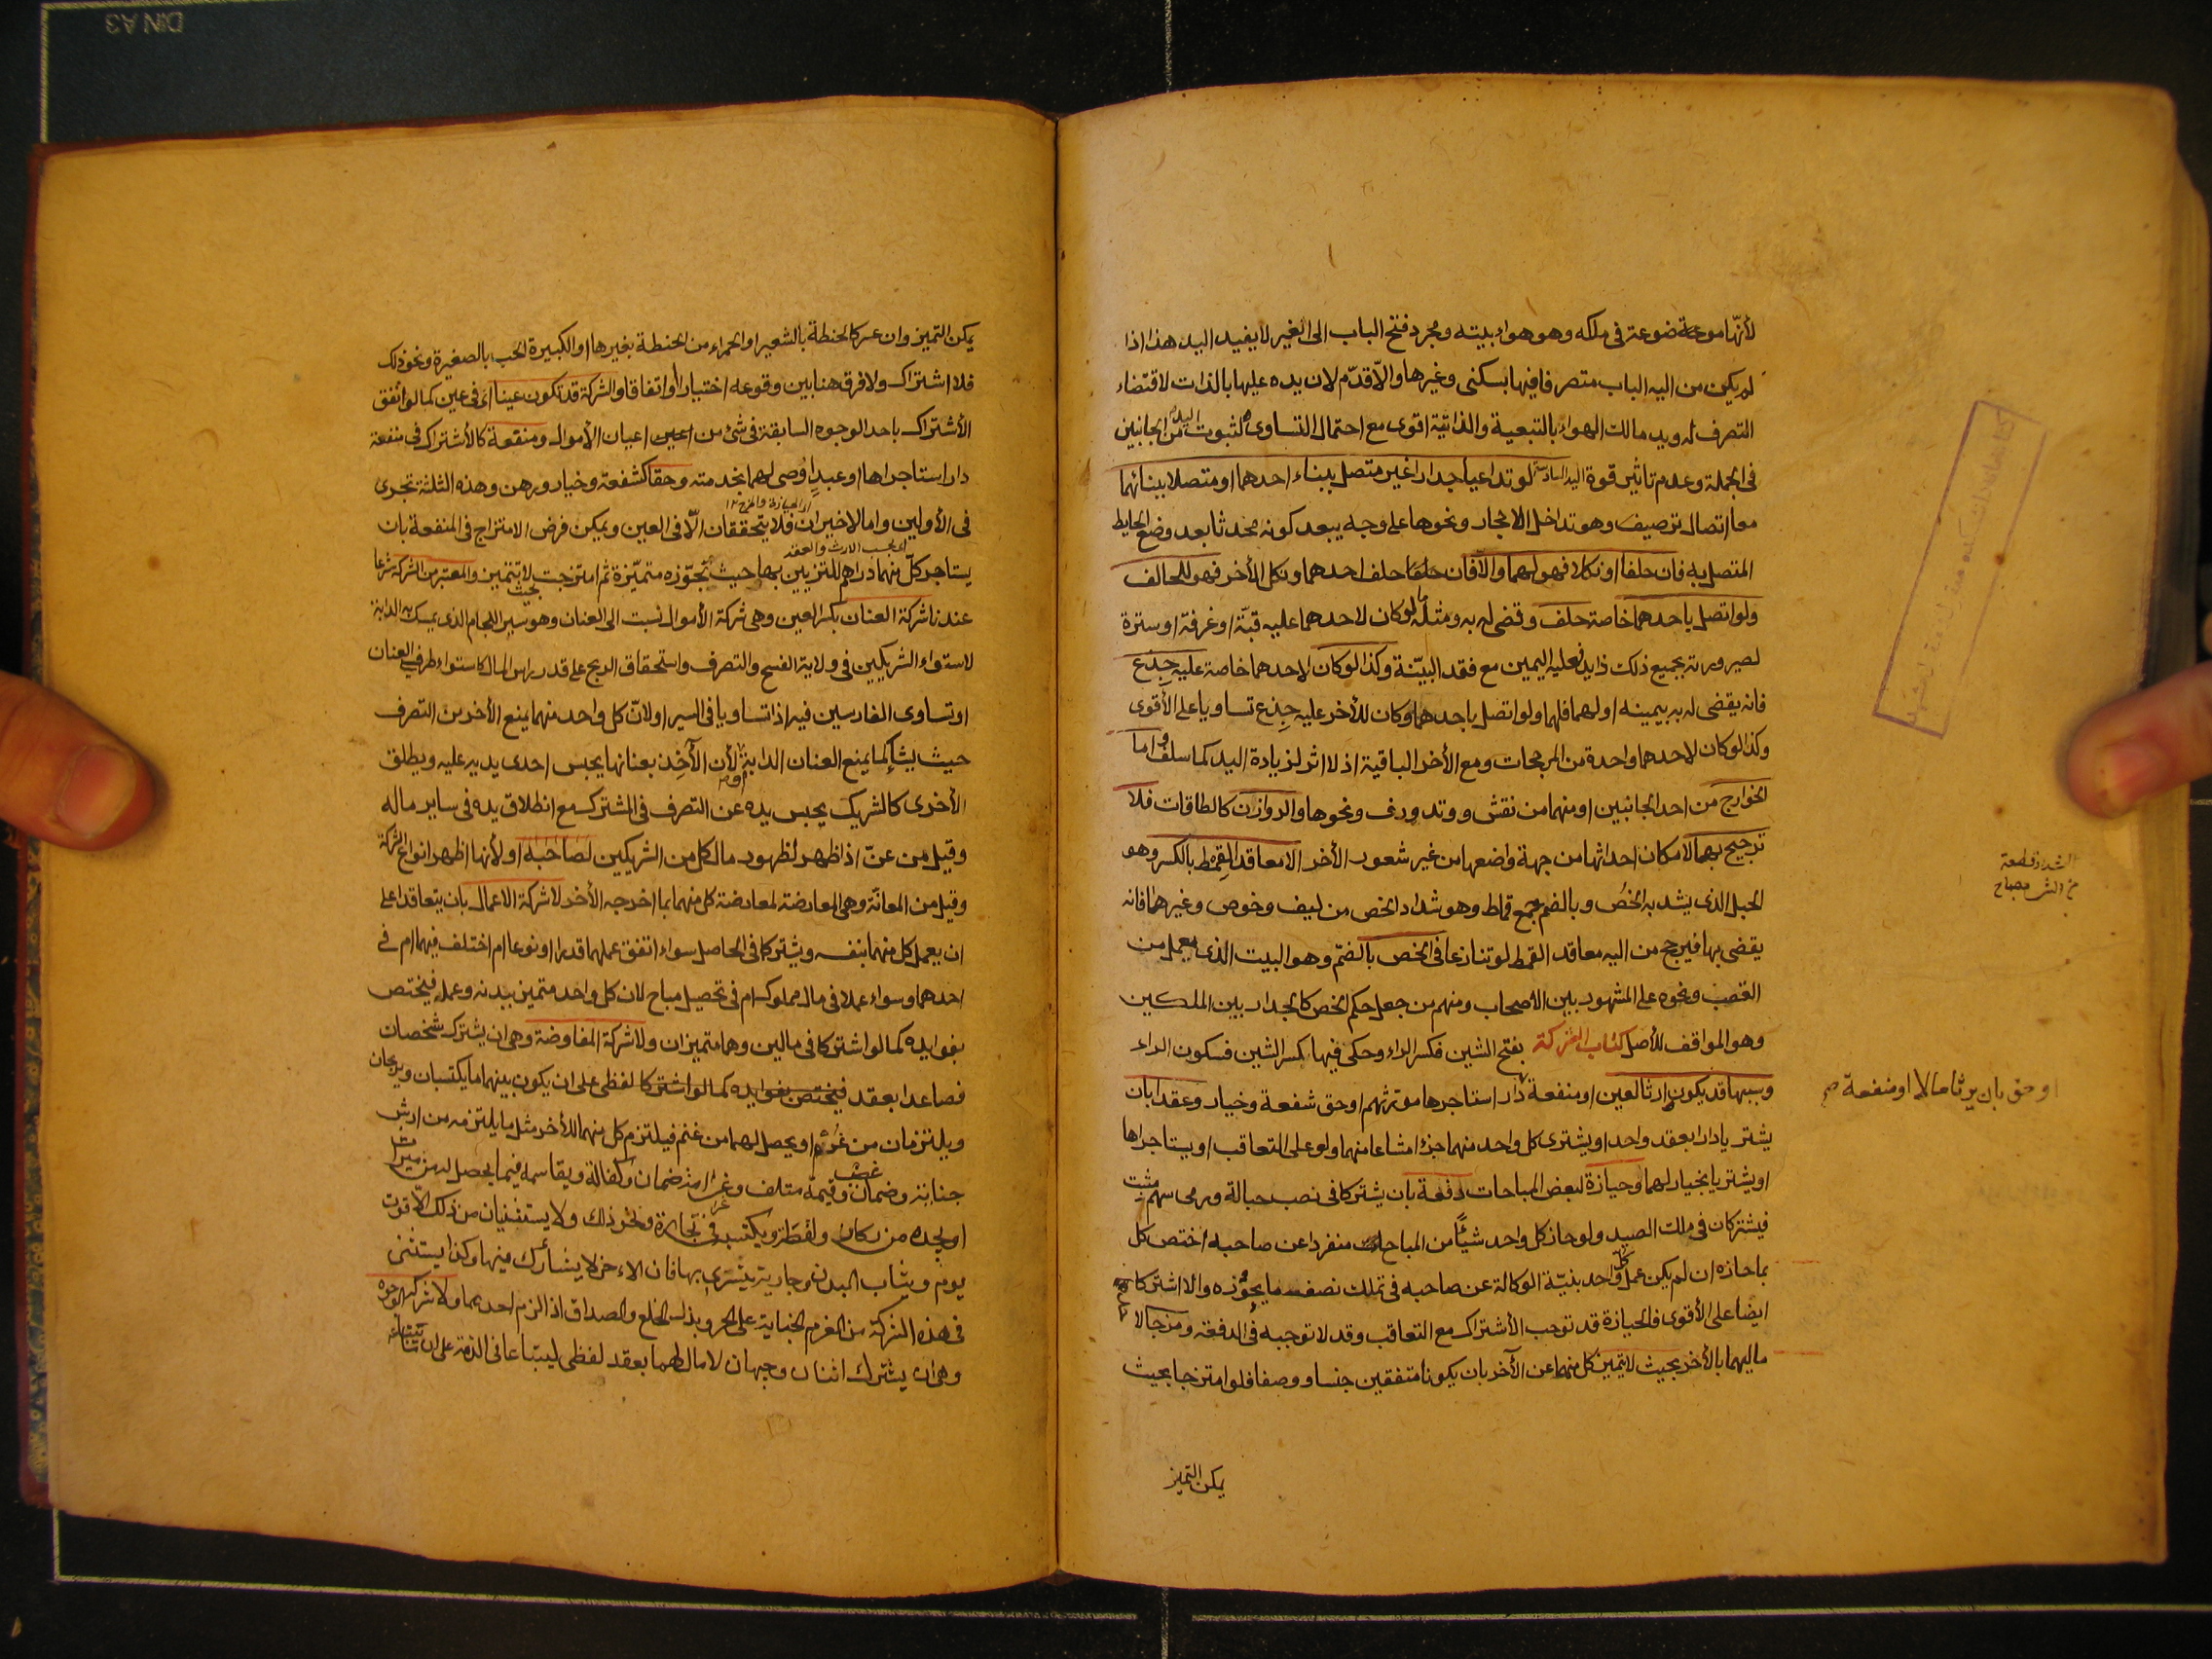 لأنّها موضوعة فى ملكه وهو هواء بيته ومجرد فتح الباب الى الغير لا يفيد اليد هذا اذا
لم يكن من اليه الباب متصرفا فيها بسكنى وغيرها والّا قدّم لان يده عليها بالذات لاقتضاء
التصرف له ويد مالك الهواء بالتبعية والذاتية اقوى مع احتمال التساوى لثبوت اليد من الجانبين
فى الجملة وعدم تاثير قوة اليد لو تداعيا جدارا غير متصل ببناء احدهما او متصلا ببنائهما
معا اتصال ترصيف وهو تداخل الاحجار ونحوها على وجه يبعد كونه محدثا بعد وضع الحايط
المتصل به فان حلفا او نكلا فهو لهما والّا فان حلف احدهما ونكل الأخر فهو للحالف
ولو اتصل باحدهما خاصة حلف وقضى له به ومثله ما لو كان لاحدهما عليه قبّة او غرفة او سترة
لصيرورته بجميع ذلك ذا يد فعليه اليمين مع فقد البيّنة وكذا لو كان لاحدهما خاصة عليه جِذع
فانه يقضى له به بيمينه او لهما فلهما ولو اتصل باحدهما وكان للأخر عليه جِذع تساويا على الأقوى
وكذا لو كان لاحدهما واحدة من المرجحات ومع الأخر الباقية اذ لا اثر لزيادة اليد كما سلف واما
الخوارج من احد الجانبين او منهما من نقش ووتد ورف ونحوها والروازن كالطاقات فلا
ترجيح بهما لامكان احداثها من جهة واضعها من غير شعور الأخر الا معاقد القِمْط بالكسر وهو
الحبل الذى يشد به الخُص وبالضم جمع قماط وهو شداد الخص من ليف وخوص وغيرهما فانه
يقضى بها فيرجح من اليه معاقد القمط لو تنازعا فى الخص بالضمّ وهو البيت الذى يعمل من
القصب ونحوه على المشهور بين الاصحاب ومنهم من جعل حكم الخص كالجدار بين الملكين
وهو الموافق للأصل كتاب الشركة بفتح الشين فكسر الراء وحكى فيها كسر الشين فسكون الراء
وسببها قد يكون ارثا لعين او منفعة دار استاجرها مورثهم او حق شفعة وخيار وعقدا بان
يشتريا دارا بعقد واحد او يشترى كل واحد منهما جزءا مشاعا منهما ولو على التعاقب او يستاجراها
او يشتريا بخيار لهما وحيازة لبعض المباحات دفعة بان يشتركا فى نصب حبالة ورمى سهم مثبت
فيشتركان فى ملك الصيد ولو حاز كل واحد شيئًا من المباحات منفردا عن صاحبه اختص كل
بما حازه ان لم يكن عمل كل واحد بنيّة الوكالة عن صاحبه فى تملك نصف ما يحوزه والا اشتركا
ايضا على الأقوى فالحيازة قد توجب الأشتراك مع التعاقب وقد لا توجبه فى الدفعة ومزجا لا
ماليهما بالأخر بحيث لا يتميز كل منهما عن الآخر بان يكونا متفقين جنسا ووصفا فلو امتزجا بحيث
يمكن التميز
الشداد قطعة
او حق بان يرثا مالا او منفعة صح
يمكن التميز وان عسر كالحنطة بالشعير او الحمراء من الحنطة بغيرها او الكبيرة الحب بالصغيرة ونحو ذلك
فلا اشتراك ولا فرق هنا بين وقوعه اختيارا واتفاقا والشركة قد تكون عينا اى فى عين كما لو اتفق
الأشتراك باحد الوجوه السابقة فى شئ من اعيان الأموال ومنفعة كالأشتراك فى منفعة
دار استاجراها او عبدٍ اوُصى لهما بخدمته وحقا كشفعة وخيار ورهن وهذه الثلثة تجرى
فى الأولين واما الاخيران فلا يتحققان الّا فى العين ويمكن فرض الامتزاج فى المنفعة بان
اى بحسب الارث والعقد
يستاجر كلّ منهما دراهم للتزيين بها حيث تجوّزه متميّزة ثم امتزجت بحيث لا يتميز والمعتبر من الشركة شرعا
عندنا شركة العنان بكسر العين وهى شركة الأموال نسبت الى العنان وهو سير اللجام الذى يمسك به الدابة
لاستواء الشريكين فى ولاية الفسخ والتصرف واستحقاق الربح على قدر راس المال كاستواء طرفى العنان
او تساوى الفارسين فيه اذا تساويا فى السير او لانّ كل واحد منهما يمنع الأخر من التصرف
حيث يشاء كما يمنع العنان الدابة او لأن الآخِذ بعنانها يحبس احدى يديه عليه ويطلق
الأخرى كالشريك يحبس يده عن التصرف فى المشترك مع انطلاق يده فى ساير ماله
وقيل من عنّ اذا ظهر لظهور مال كل من الشريكين لصاحبه او لأنها اظهر انواع الشركة
وقيل من المعانّة وهى المعارضة لمعارضة كل منهما بما اخرجه الأخر لا شركة الاعمال بان يتعاقدا على
ان يعمل كل منهما بنفسه ويشتركا فى الحاصل سواء اتفق عملهما قدرا او نوعا ام اختلف فيهما ام فى
احدهما وسواء عملا فى مال مملوك ام فى تحصيل مباح لان كل واحد متميز ببدنه وعمله فيختص
بفوايده كما لو اشتركا فى مالين وهما متميزان ولا شركة المفاوضة وهى ان يشترك شخصان
فصاعدا بعقد فيختص بفوايده كما لو اشتركا لفظى على ان يكون بينهما ما يكتسبان ويربحان
ويلتزمان من غُرم او يحصل لهما من غنم فيلتزم كل منهما للأخر مثل ما يلتزمه من ارش
جناية وضمان غصب وقيمة متلف وغرامة ضمان وكفالة ويقاسمه فيما يحصل له من ميراث
او يجده من ركاز ولقطة ويكتسبه فى تجارة ونحو ذلك ولا يستثنيان من ذلك الّا قوت
يوم وثياب البدن وجارية يتسرى بها فان الاخر لا يشارك فيها وكذا يستثنى
فى هذه الشركة من الغرم الجناية على الحر وبذل الخلع والصداق اذا لزم احدهما ولا شركة الوجوه
وهى ان يشترك اثنان وجيهان لا مال لهما بعقد لفظى ليبتاعا فى الذمة على ان
DIN A3